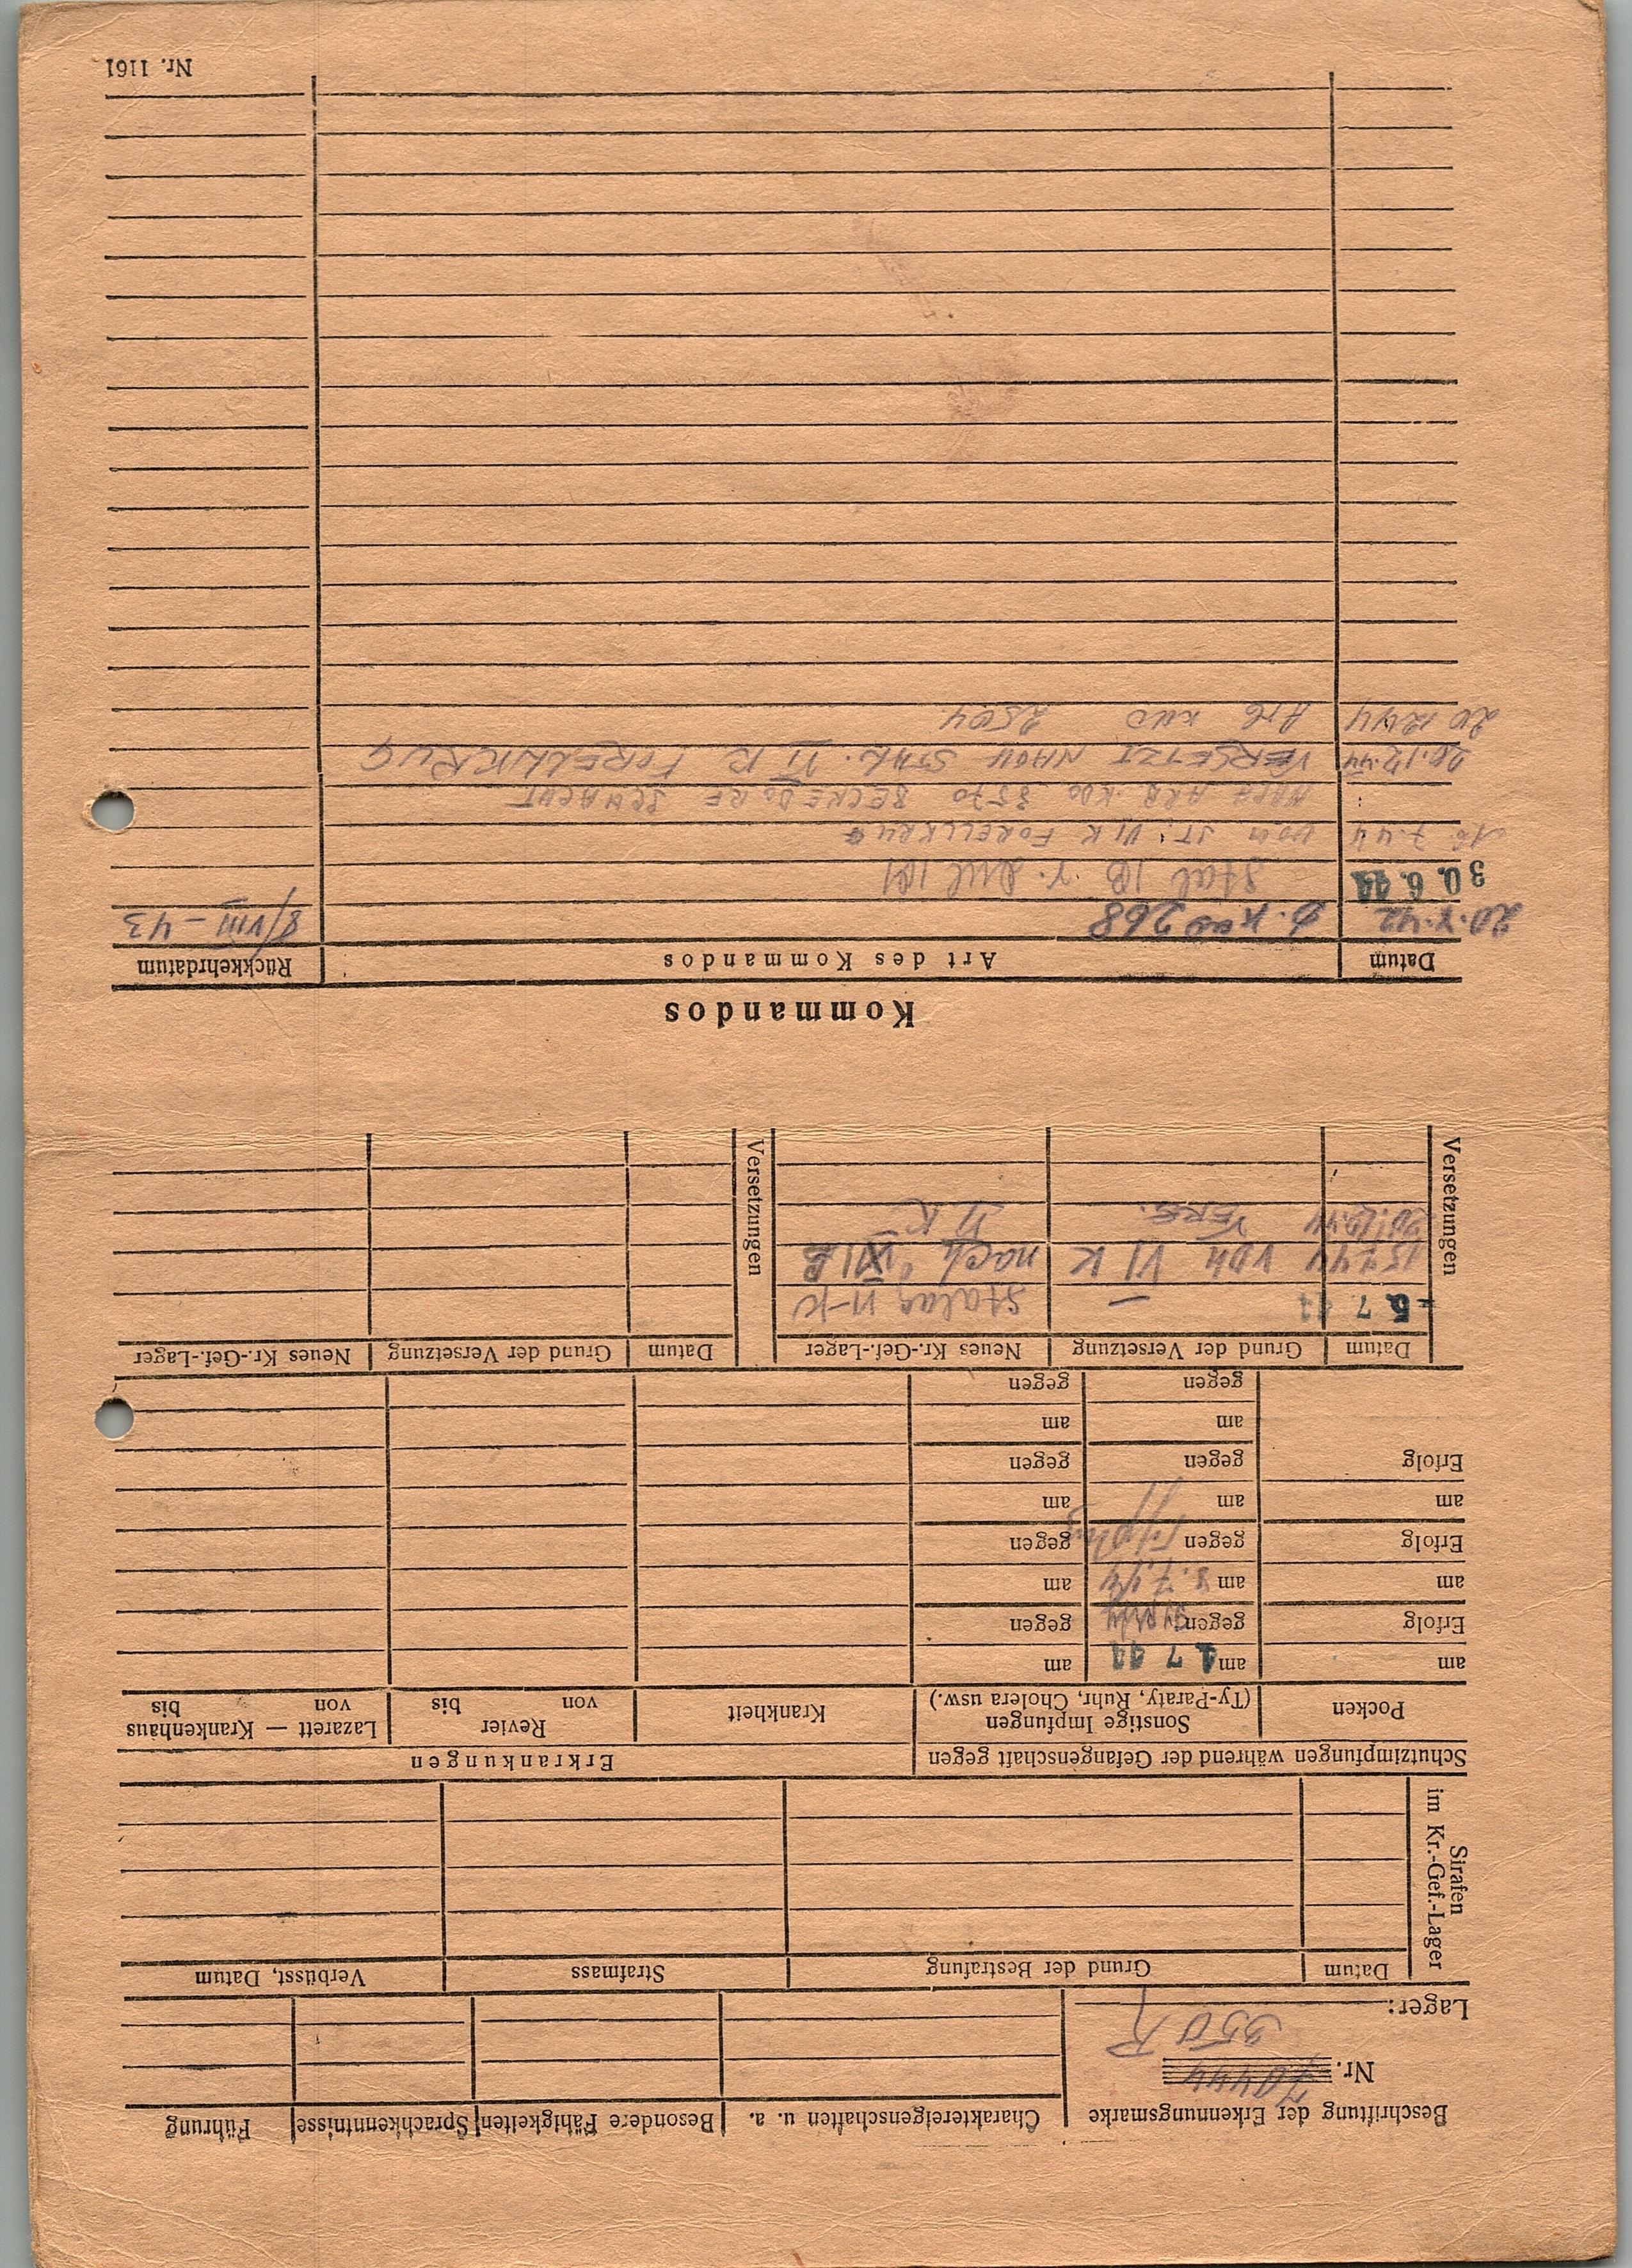 Beschriftung der Erkennungsmarke
Nr. 70444
350 R
Lager:
Charaktereigenschaften u. a.
Besondere Fähigkeiten
Sprachkenntnisse
Führung
Strafen
im Kr.-Gef.-Lager
Datum
Grund der Bestrafung
Strafmass
Verbüsst, Datum
Schutzimpfungen während der Gefangenschaft gegen
Erkrankungen
Pocken
Sonstige Impfungen
(Ty-Paraty, Ruhr, Cholera usw.)
Krankheit
Revier
von bis
Lazarett — Krankenhaus
von bis
am
am 1 7 44
am
Erfolg
gegen
gegen
am
am 8.7.44
am
Erfolg
gegen
gegen
am
am
am
Erfolg
gegen
gegen
am
am
gegen
gegen
Versetzungen
Datum
Grund der Versetzung
Neues Kr.-Gef.-Lager
Versetzungen
Datum
Grund der Versetzung
Neues Kr.-Gef.-Lager
- 5. 7 44
Stalag VI-K
15.7.44
VON VI K
nach
20.12.44
VERS.
VI K
Kommandos
Datum
Art des Kommandos
Rückkehrdatum
268
8/VIII – 43
30. 6. 44
Stal IB
7.44
VOM ST. VI K FORELLKRUG
NACH ARB. KDO
20.12.44
VERSETZT NACH STAL. VI K FORELLKRUG
20 12 44
ARB KDO
Nr. 1161